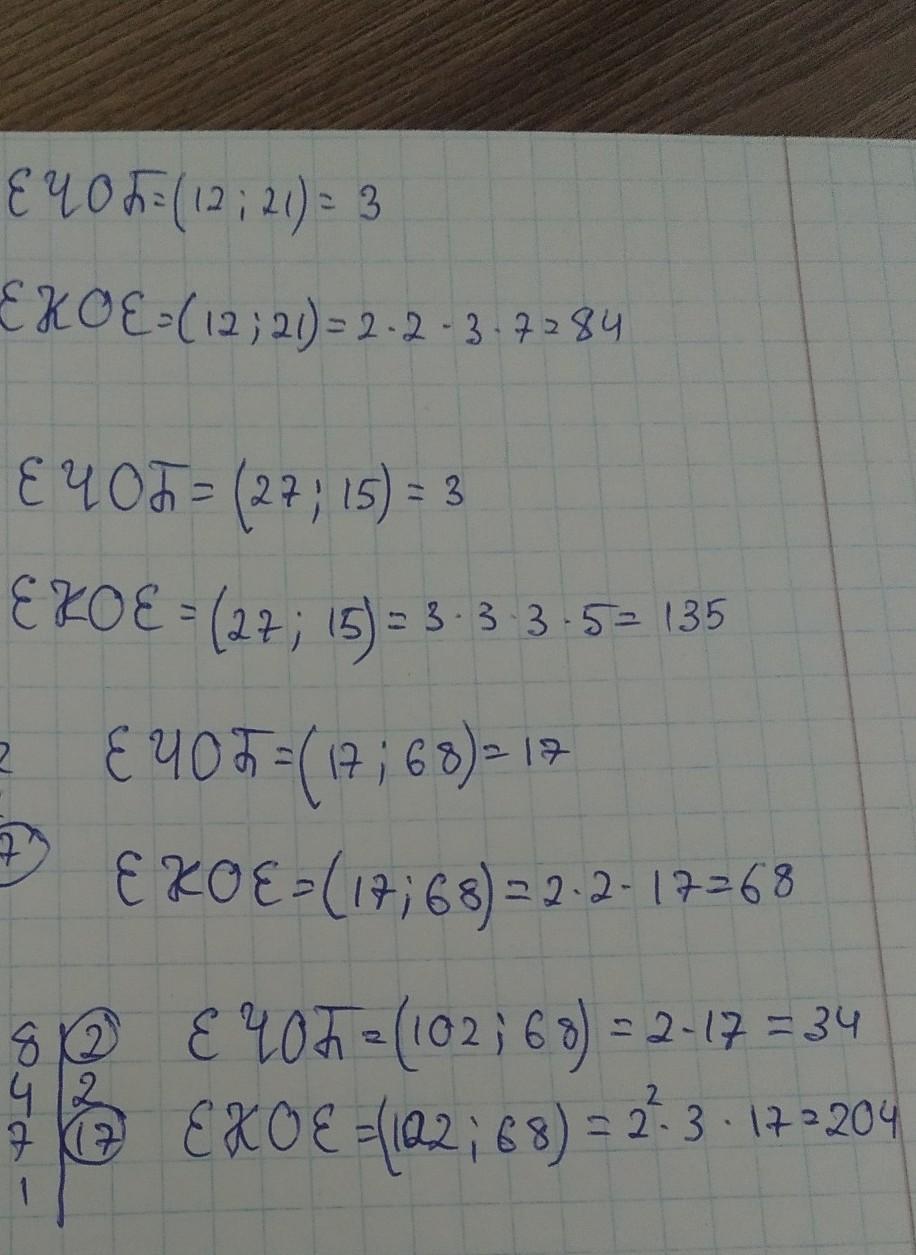 ЕҮОБ=(12;21)=3
ЕКОЕ=(12;21)=2·2·3·7=84
ЕҮОБ=(27;15)=3
ЕКОЕ=(27;15)=3·3·3·5=135
2 ЕҮОБ=(17;68)=17
7 ЕКОЕ=(17;68)=2·2·17=68
8 2 ЕҮОБ=(102;68)=2·17=34
4 2
7 17 ЕКОЕ=(102;68)=2²·3·17=204
1